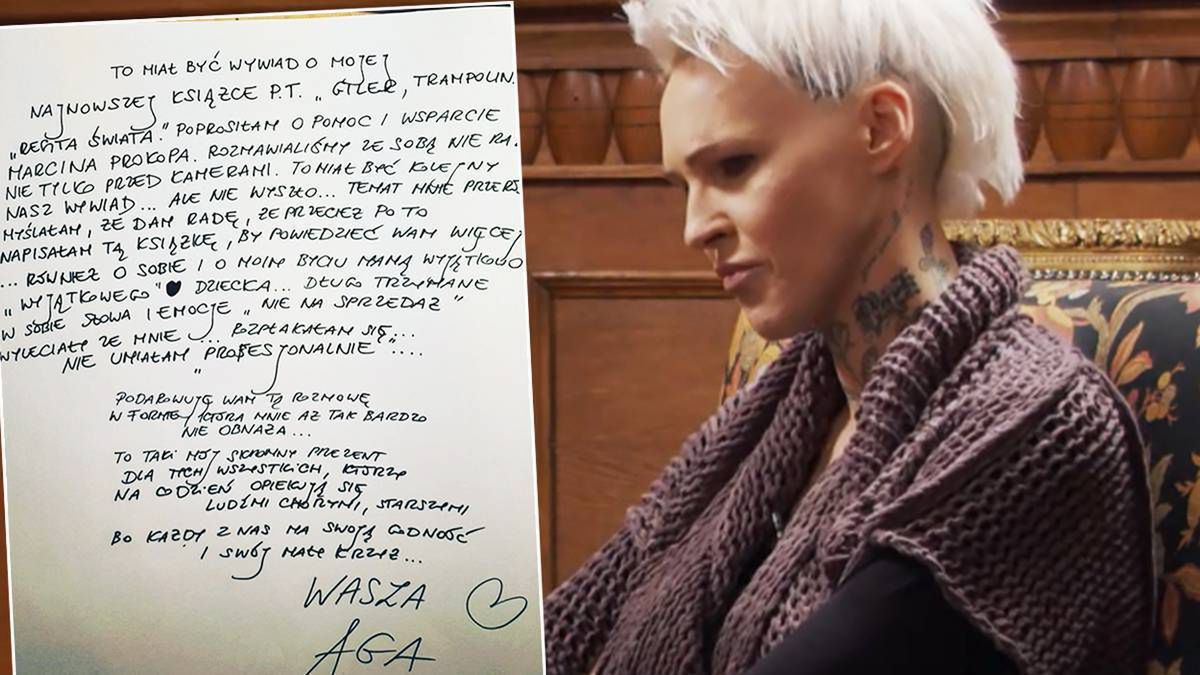 TO MIAŁ BYĆ WYWIAD O MOJEJ
NAJNOWSZEJ KSIĄŻCE P.T. „GTLER, TRAMPOLIN.
„RESZTA ŚWIATA." POPROSIŁAM O POMOC I WSPARCIE
MARCINA PROKOPA. ROZMAWIALIŚMY ZE SOBĄ NIE RA.
NIE TYLKO PRZED KAMERAMI. TO MIAŁ BYĆ KOLEJNY
NASZ WYWIAD... ALE NIE WYSZŁO... TEMAT MNIE PRZERS
MYŚLAŁAM, ŻE DAM RADĘ, ŻE PRZECIEŻ PO TO
NAPISAŁAM TĄ KSIĄŻKĘ, BY POWIEDZIEĆ WAM WIĘCEJ
... RÓWNIEŻ O SOBIE I O MOIM BYCIU MAMĄ WYJĄTKOWO
„WYJĄTKOWEGO" ♥ DZIECKA... DŁUGO TRZYMANE
W SOBIE SŁOWA I EMOCJE „NIE NA SPRZEDAŻ"
WYLECIAŁY ZE MNIE... ROZPŁAKAŁAM SIĘ...
NIE UMIAŁAM „PROFESJONALNIE"....
PODAROWUJĘ WAM TĄ ROZMOWĘ
W FORMIE, KTÓRA MNIE AŻ TAK BARDZO
NIE OBNAŻA...
TO TAKI MÓJ SKROMNY PREZENT
DLA TYCH WSZYSTKICH, KTÓRZY
NA CO DZIEŃ OPIEKUJĄ SIĘ
LUDŹMI CHORYMI, STARSZYMI
BO KAŻDY Z NAS MA SWOJĄ GODNOŚĆ
I SWÓJ MAŁY KRZYŻ...
WASZA
AGA